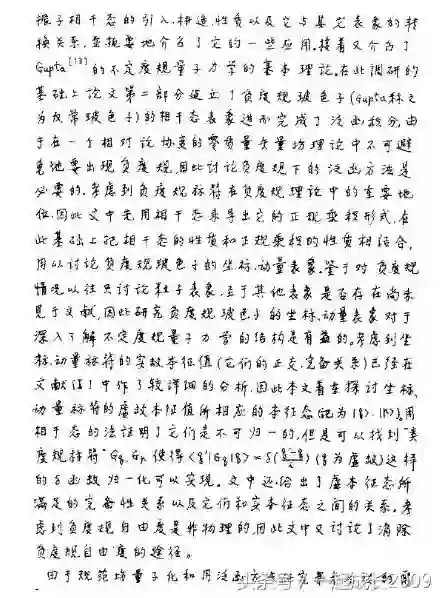 振子相干态的引入.构造.性质以及它与其它表象的转
换关系.并扼要地介绍了它的一些应用.接着又介绍了
Gupta[13]的不定度规量子力学的基本理论.在此调研的
基础上论文第二部分建立了负度规玻色子(Gupta称之
为反常玻色子)的相干态表象进而完成了泛函积分.由
于在一个相对论协变的零质量矢量场理论中不可避
免地要出现负度规,因此讨论负度规下的泛函方法是
必要的.考虑到负度规标符在负度规理论中的重要地
位.因此文中先用相干态来导出它的正规乘积形式.在
此基础上把相干态的性质和正规乘积的性质相结合,
用以讨论负度规玻色子的坐标.动量表象.鉴于对负度规
情况以往只讨论粒子表象.至于其他表象是否存在尚未
见于文献,因此研究负度规玻色子的坐标,动量表象对于
深入了解不定度规量子力学的结构是有益的.考虑到坐
标.动量标符的实数本征值(它们的正交.完备关系)已经在
文献[ ]中作了较详细的分析.因此本文着重探讨坐标,
动量标符的虚数本征值所相应的本征态(记为|g>.|p>),用
相干态的方法证明了它们是不可归一的,但是可以找到"类
度规标符"Gg.Gp 使得<g'|Gg|g>=δ( )(g为虚数)这样
的δ函数归一化可以实现.文中还给出了虚本征态所
满足的完备性关系以及它们和实本征态之间的关系.考
虑到负度规自由度是非物理的,因此文中又讨论了消除
负度规自由度的途径.
由于规范场量子化和用泛函
头条号
2009